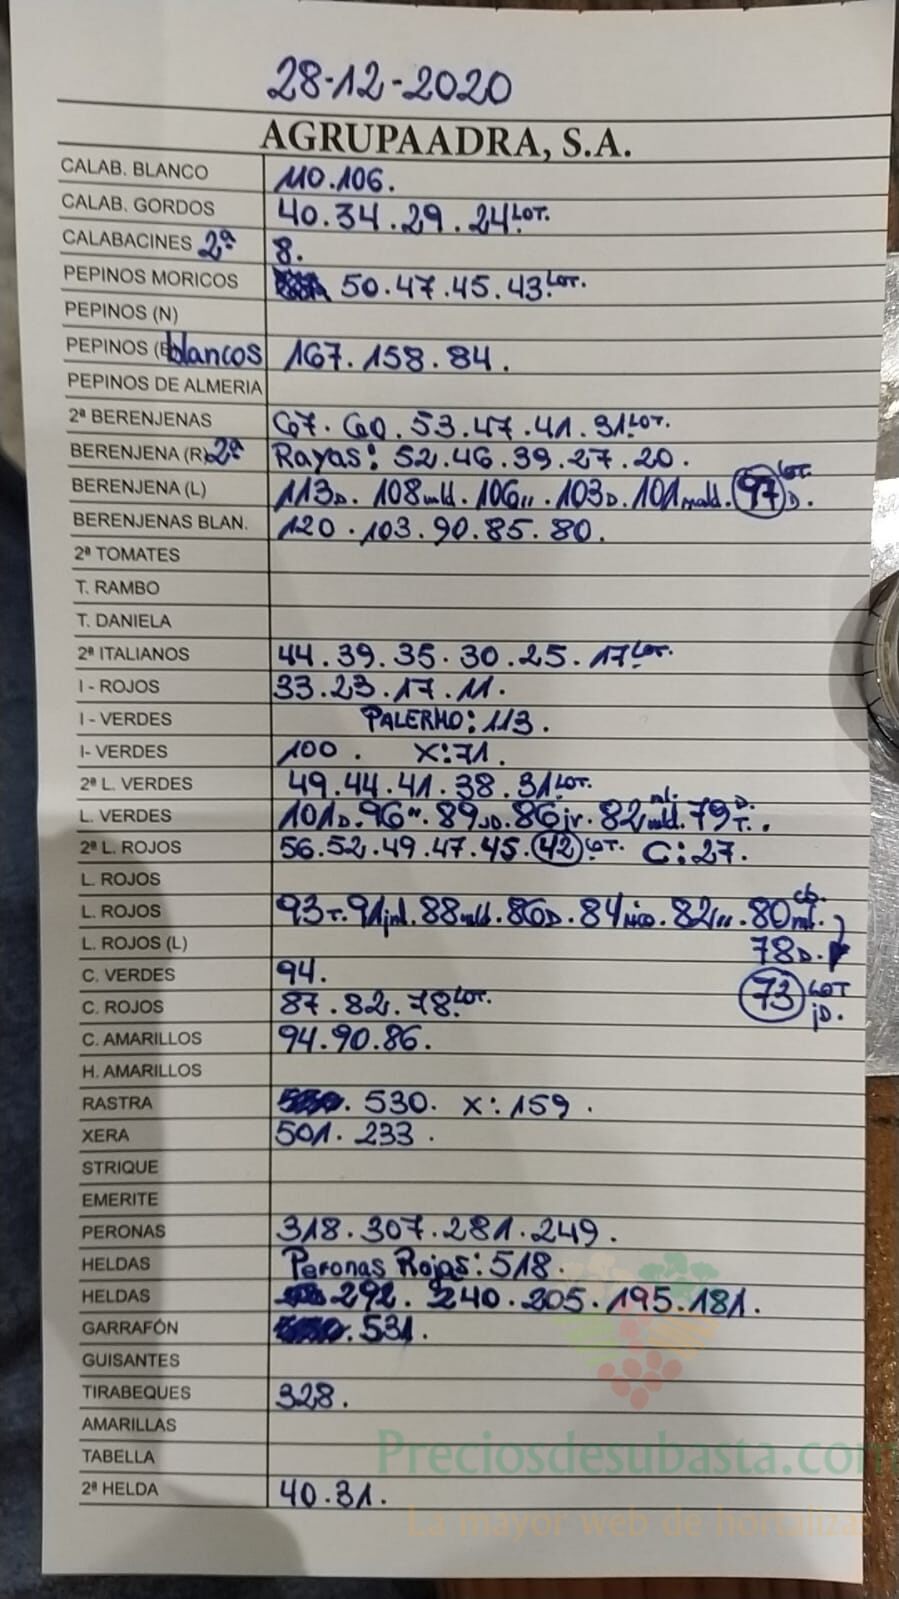 28-12-2020
AGRUPAADRA, S.A.
CALAB. BLANCO 110.106.
CALAB. GORDOS 40.34.29.24LOT.
CALABACINES 2ª 8.
PEPINOS MORICOS 50.47.45.43LOT.
PEPINOS (N)
PEPINOS (B blancos 167.158.84.
PEPINOS DE ALMERIA
2ª BERENJENAS 67.60.53.47.41.31LOT.
BERENJENA (R) 2ª Rayas: 52.46.39.27.20.
BERENJENA (L) 113D. 108mld. 106,,. 103D. 101mald. 97 LOT. D.
BERENJENAS BLAN. 120.103.90.85.80.
2ª TOMATES
T. RAMBO
T. DANIELA
2ª ITALIANOS 44.39.35.30.25.17LOT.
I - ROJOS 33.23.17.11.
I - VERDES PALERMO: 113.
I- VERDES 100. X:71.
2ª L. VERDES 49.44.41.38.31LOT.
L. VERDES 101D.96".89JD.86jr.82 ml. mld.79 D. T..
2ª L. ROJOS 56.52.49.47.45.42 LOT. C:27.
L. ROJOS
L. ROJOS 93T.91jnl.88mld.86D.84.82,,.80 cb. ml.
L. ROJOS (L) 78D.
C. VERDES 94.
C. ROJOS 87.82.78LOT. 73 LOT jD.
C. AMARILLOS 94.90.86.
H. AMARILLOS
RASTRA 530. X:159.
XERA 501.233.
STRIQUE
EMERITE
PERONAS 318.307.281.249.
HELDAS Peronas Rojas: 518.
HELDAS 292. 240.205.195.181.
GARRAFÓN 531.
GUISANTES
TIRABEQUES 328.
AMARILLAS
TABELLA
Preciosdesubasta.com
2ª HELDA 40.31.
La mayor web de hortalizas